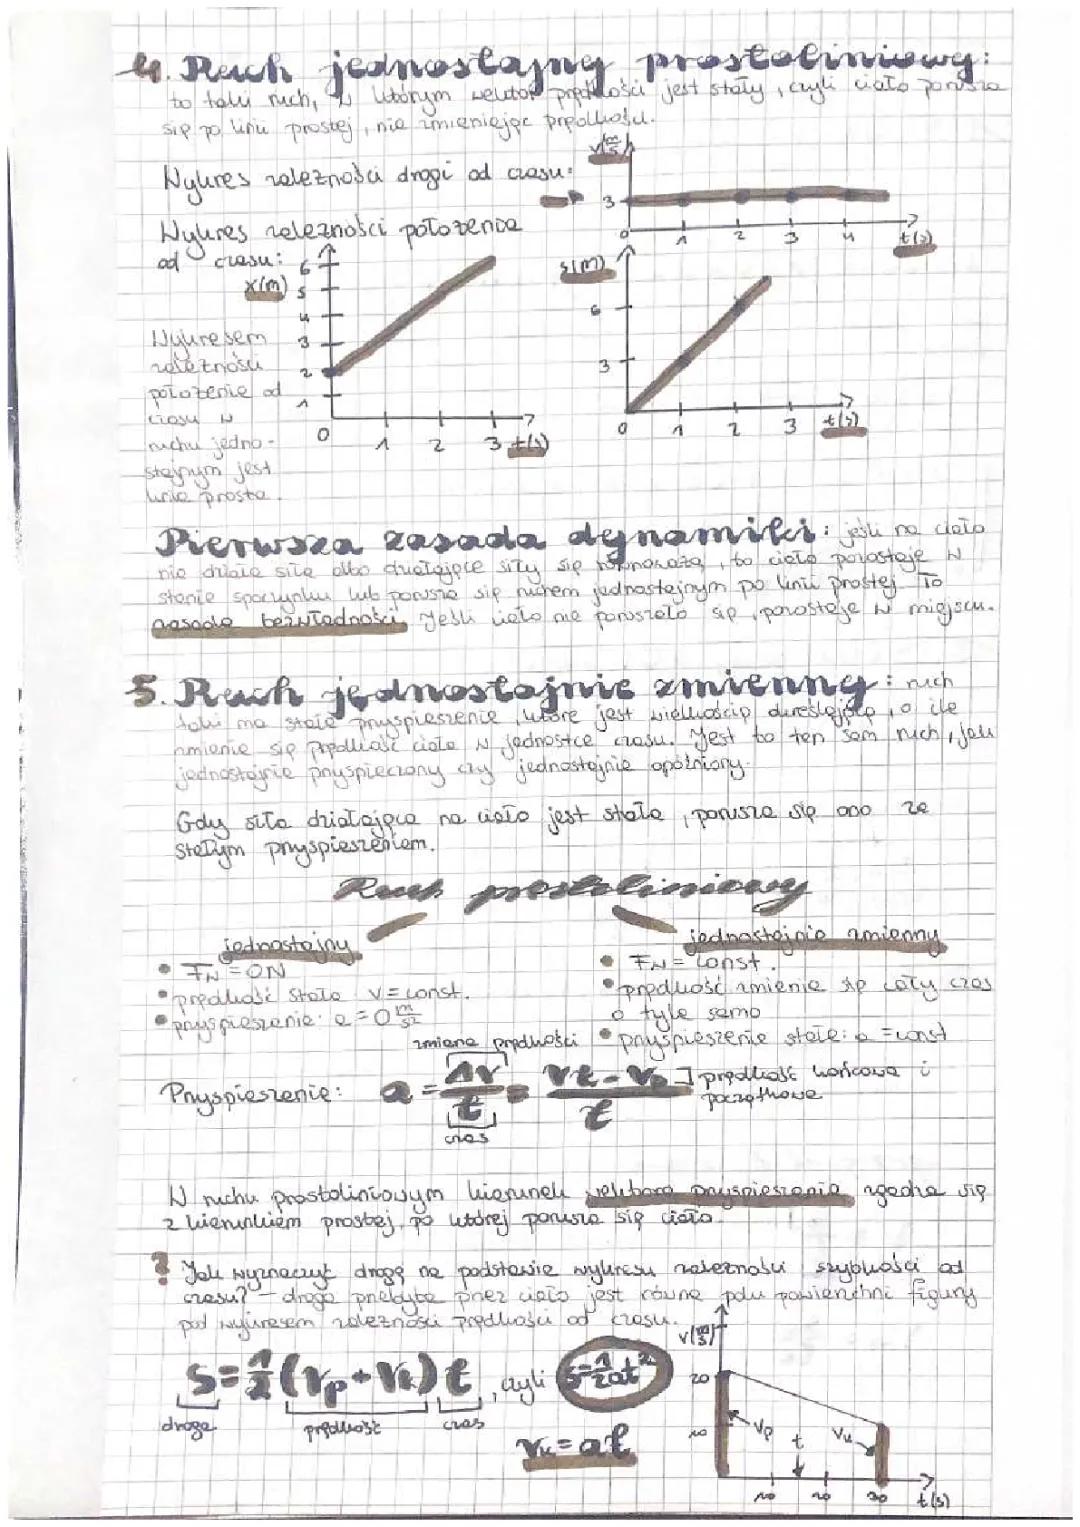 4. Ruch jednostajny prostoliniowy:
to taki ruch, w którym wektor prędkości jest stały, czyli ciało porusza
się po linii prostej, nie zmieniając prędkości.
Wykres zależności drogi od czasu:
v(m/s)
3
0 1 2 3 4 t(s)
Wykres zależności położenia
od czasu:
x(m)
6
5
4
3
2
1
0 1 2 3 t(s)
s(m)
6
3
0 1 2 3 t(s)
Wykresem
zależności
położenie od
czasu w
ruchu jedno-
stajnym jest
linia prosta.
Pierwsza zasada dynamiki: jeśli na ciało
nie działa siła albo działające siły się równoważą, to ciało pozostaje w
stanie spoczynku lub porusza się ruchem jednostajnym po linii prostej. To
zasada bezwładności. Jeśli ciało nie poruszało się, pozostaje w miejscu.
5. Ruch jednostajnie zmienny: ruch
taki ma stałe przyspieszenie, które jest wielkością określającą, o ile
zmienia się prędkość ciała w jednostce czasu. Jest to ten sam ruch, jak
jednostajnie przyspieszony czy jednostajnie opóźniony.
Gdy siła działająca na ciało jest stała, porusza się ono ze
stałym przyspieszeniem.
Ruch prostoliniowy
jednostajny
• FN = 0N
• prędkość stała v = const.
• przyspieszenie: a = 0 m/s²
jednostajnie zmienny
• FN = const.
• prędkość zmienia się cały czas
o tyle samo
• przyspieszenie stałe: a = const
zmiana prędkości
Przyspieszenie: a = Δv/t = vk - vp/t ] prędkość końcowa i
początkowa
czas
W ruchu prostoliniowym kierunek wektora przyspieszenia zgadza się
z kierunkiem prostej, po której porusza się ciało.
? Jak wyznaczyć drogę na podstawie wykresu zależności szybkości od
czasu? - droga przebyta przez ciało jest równa polu powierzchni figury
pod wykresem zależności prędkości od czasu.
s = 1/2 (vp + vk) t, czyli s = 1/2 at²
droga prędkość czas
vk = at
v(m/s)
20
10
vp t vk
10 20 30 t(s)